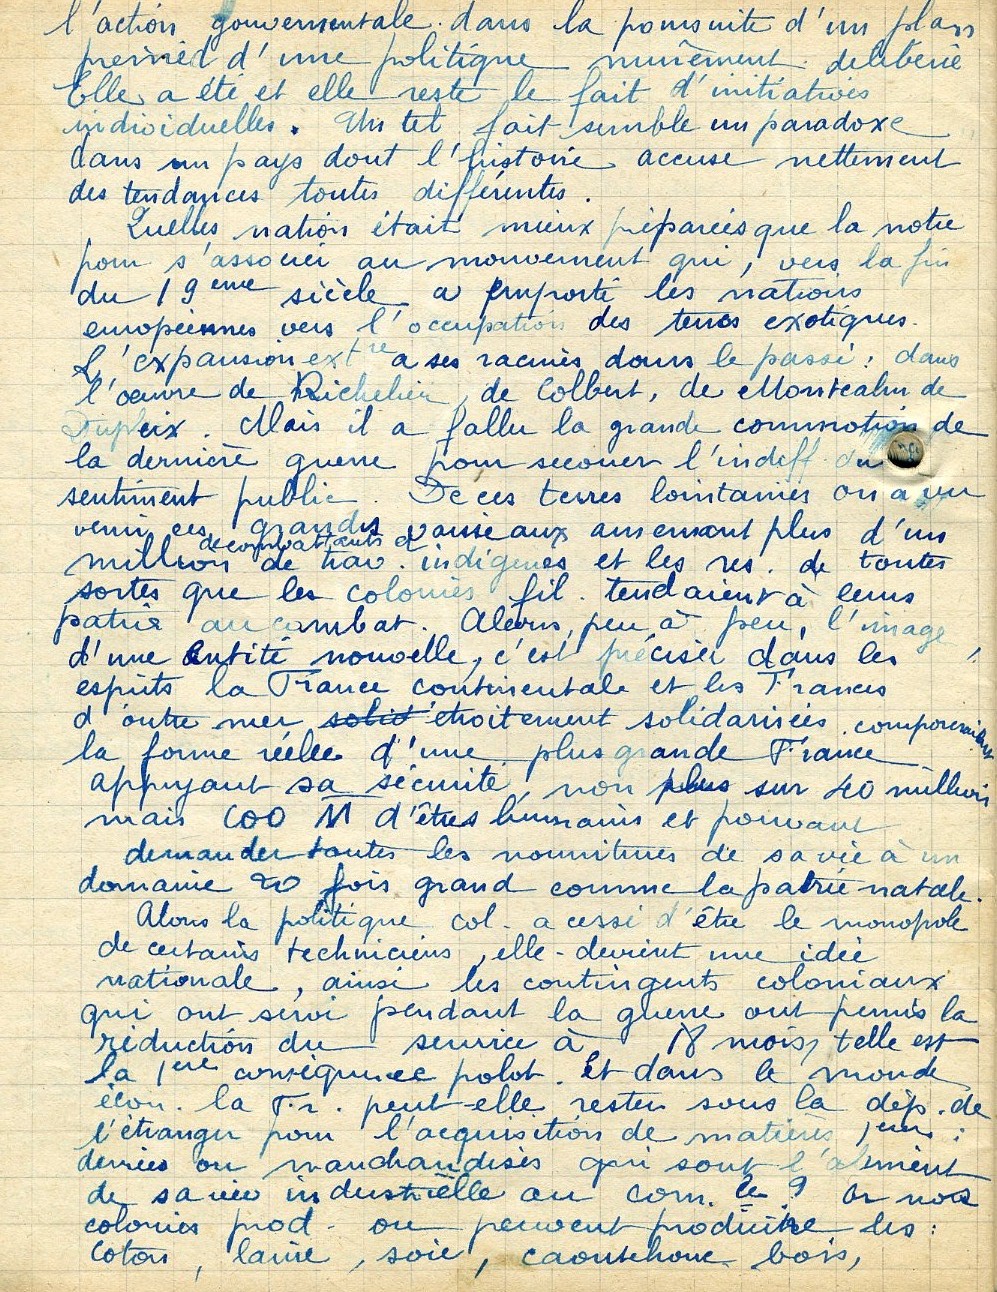 l'action gouvernementale dans la poursuite d'un plan
d'une politique mûrement délibérée
Elle a été et elle reste le fait d'initiatives
individuelles. Un tel fait semble un paradoxe
dans un pays dont l'histoire accuse nettement
des tendances toutes différentes.
Quelles nation était mieux préparées que la notre
pour s'associer au mouvement qui, vers la fin
du 19eme siècle a emporté les nations
européennes vers l'occupation des terres exotiques.
L'expansion extre a ses racines dans le passé : dans
l'oeuvre de Richelieu, de Colbert, de Montcalm de
Dupleix. Mais il a fallu la grande commotion de
la dernière guerre pour secouer l'indiff. du
sentiment public. De ces terres lointaines on a vu
venir ces grands vaisseaux amenant plus d'un
million de combattants et de trav. indigènes et les res. de toutes
sortes que les colonies fil. tendaient à leurs
patrie au combat. Alors, peu à peu, l'image
d'une entité nouvelle, c'est préciser dans les
esprits la France continentale et les Frances
d'outre mer solid étroitement solidarisées, composeraient
la forme réelle d'une plus grande France
appuyant sa sécurité, non plus sur 40 millions
mais 100 M d'êtres humains et pouvant
demander toutes les nourritures de sa vie à un
domaine 20 fois grand comme la patrie natale.
Alors la politique col. a cessé d'être le monopole
de certains techniciens, elle devient une idée
nationale, ainsi les contingents coloniaux
qui ont servi pendant la guerre ont permis la
réduction du service à 18 mois, telle est
la 1ere conséquence polit. Et dans le monde
écon. la Fr. peut-elle rester sous la dép. de
l'étranger pour l'acquisition de matières 1eres :
denrées ou marchandises qui sont l'aliment
de sa vie industrielle au com. ? Or nos
colonies prod. ou peuvent produire les :
Coton, laine, soie, caoutchouc bois,